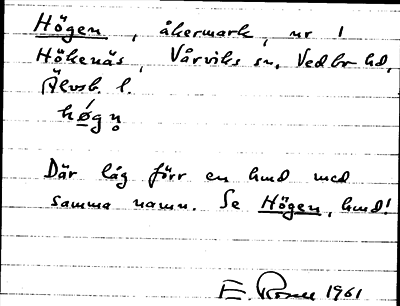 Högen, åkermark, nr 1
Hökenäs, Vårviks sn, Vedbo hd,
Älvsb. l.
Där låg förr en hmd med
samma namn. Se Högen, hmd!
E. 1961